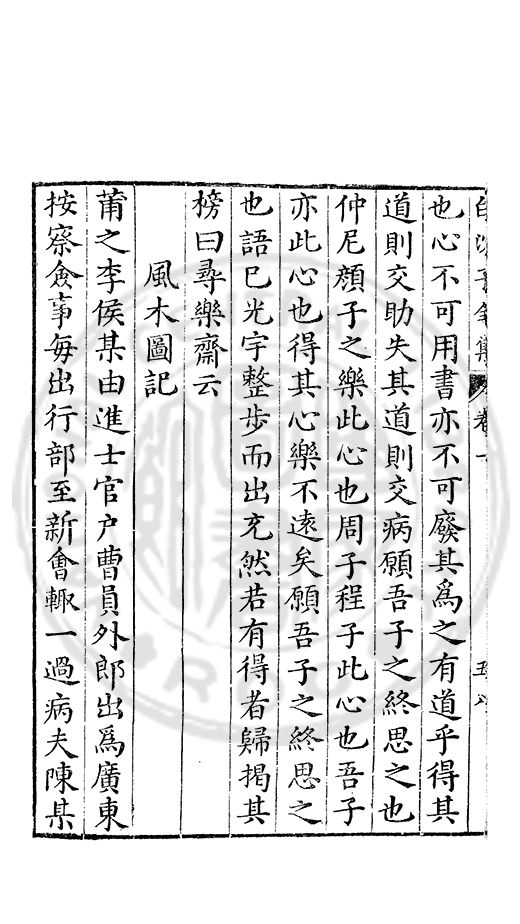 也心不可用書亦不可廢其爲之有道乎得其
道則交助失其道則交病願吾子之終思之也
仲尼顏子之樂此心也周子程子此心也吾子
亦此心也得其心樂不遠矣願吾子之終思之
也語已光宇整步而出充然若有得者歸揭其
榜曰尋樂齋云
風木圖記
莆之李侯某由進士官户曹員外郎出爲廣東
按察僉事每出行部至新會輙一過病夫陳某